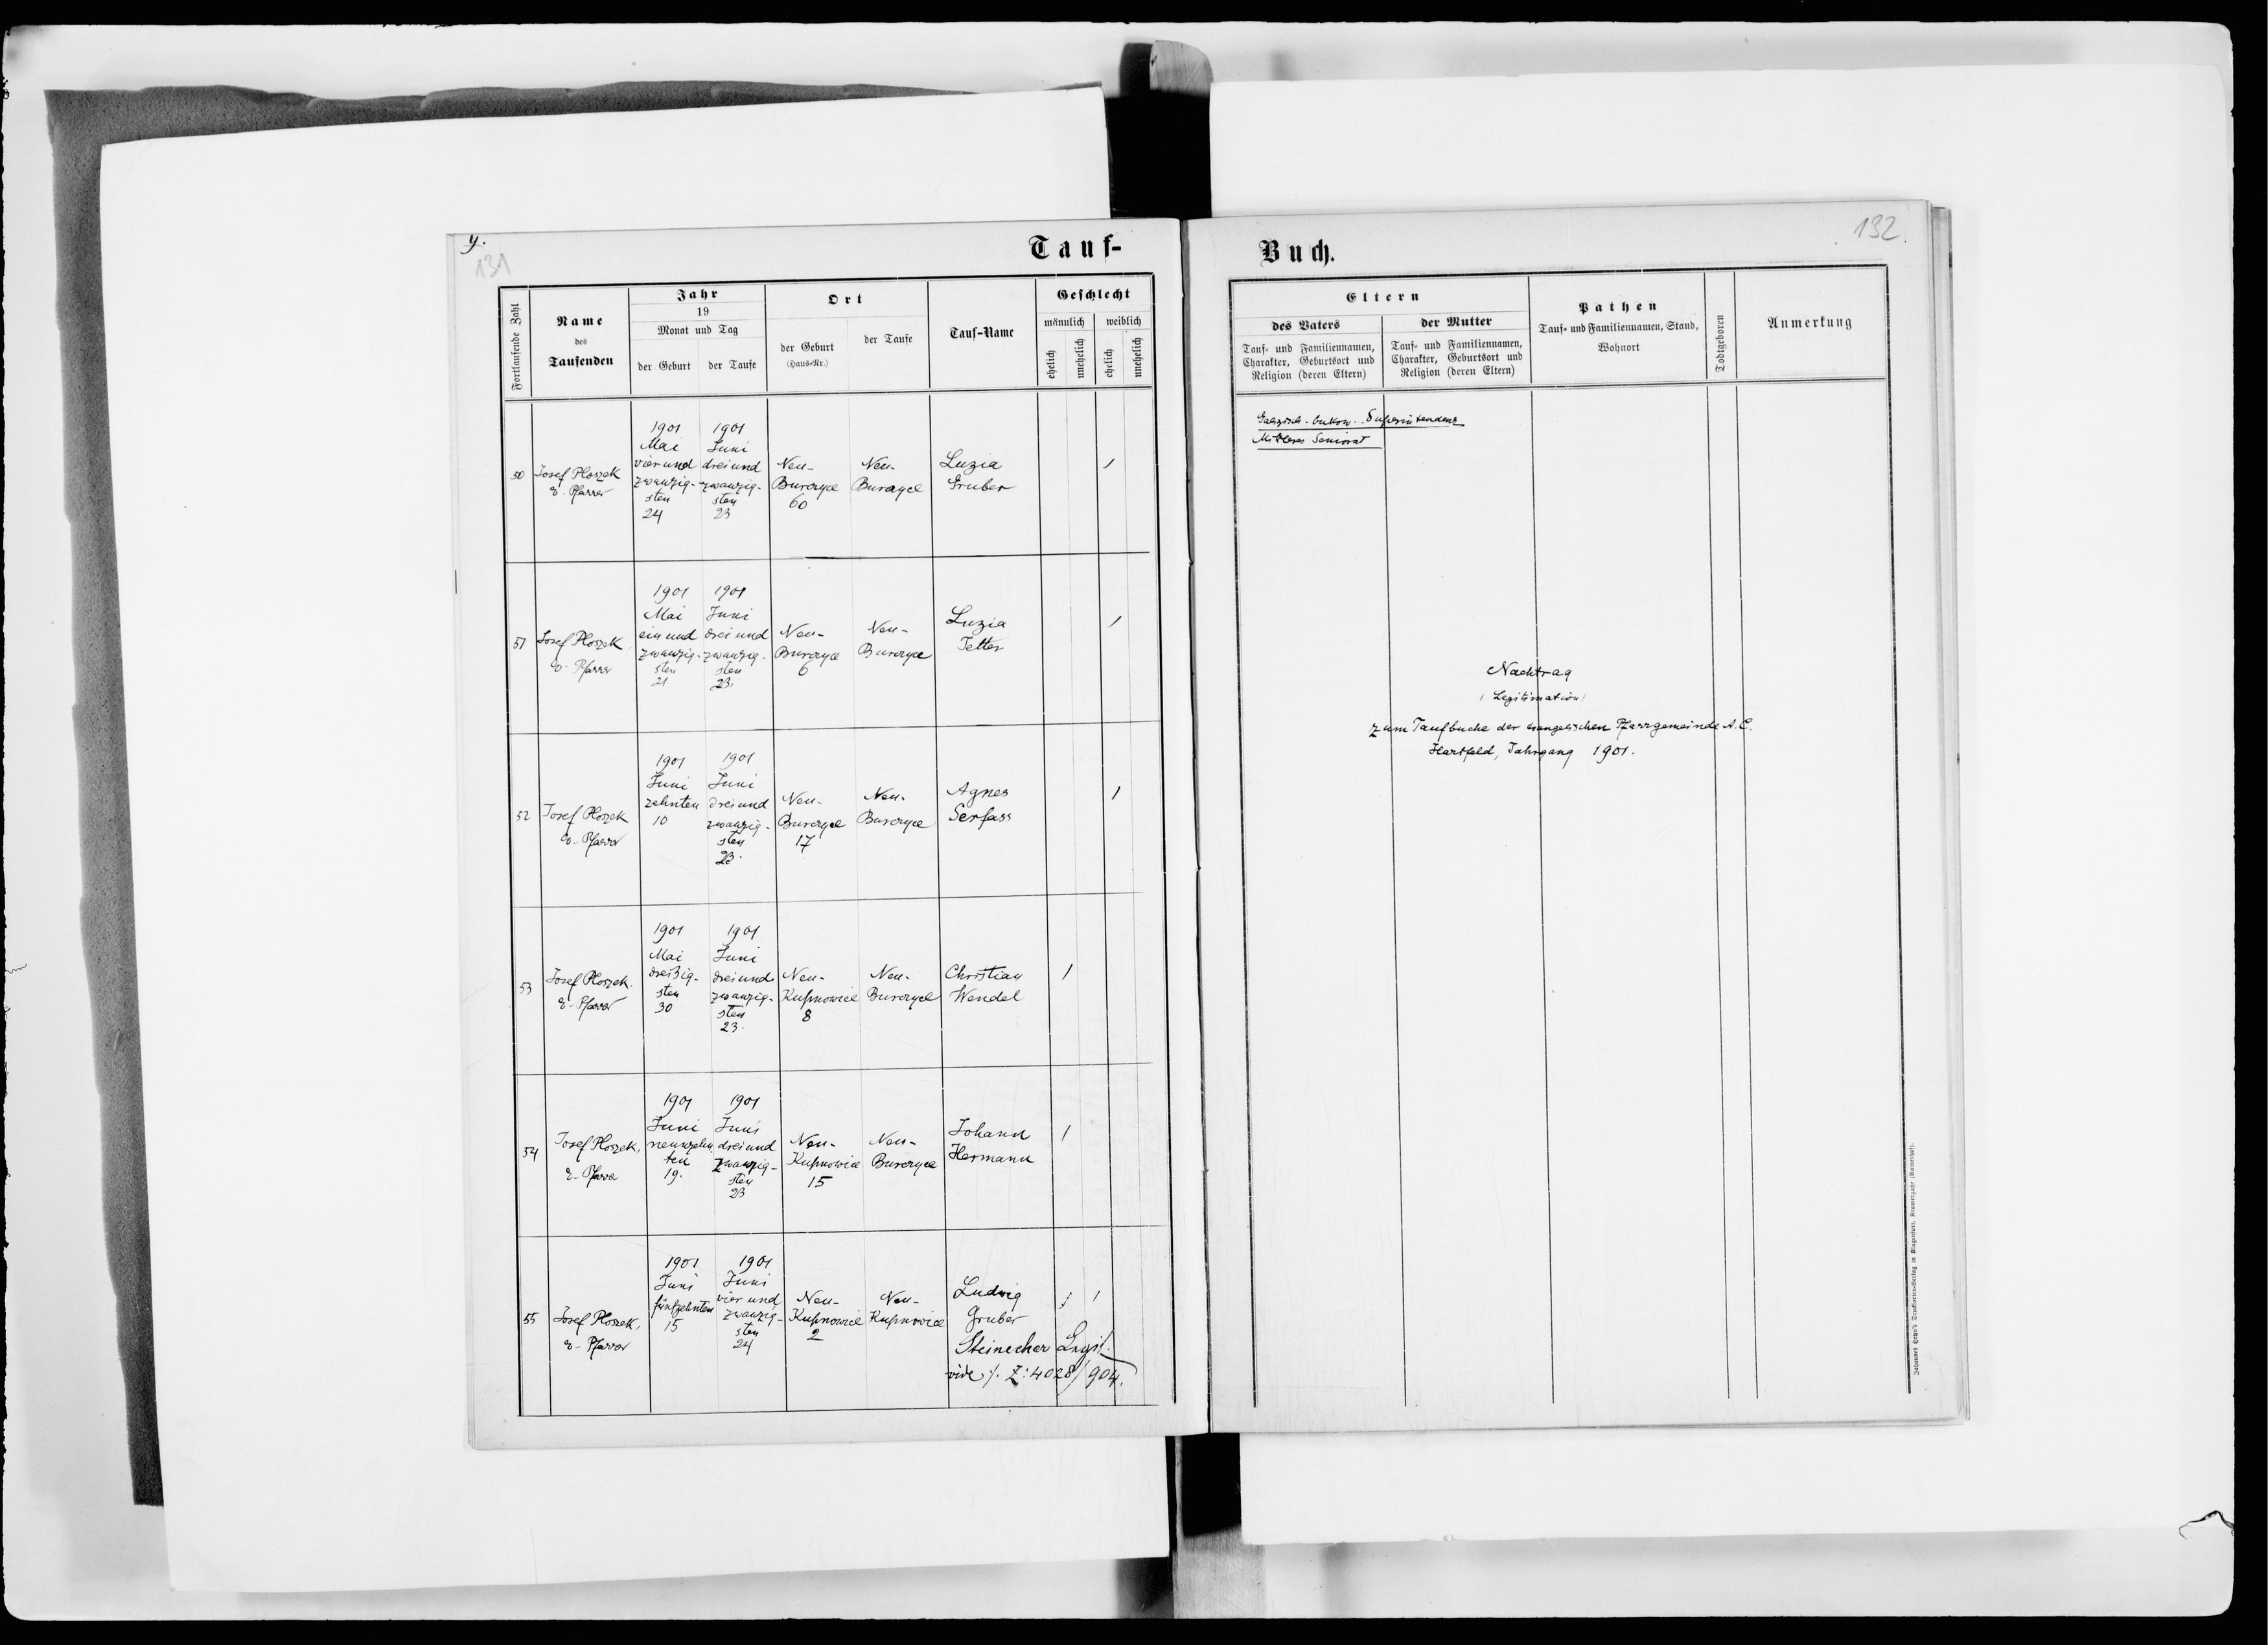 9.
131
Tauf-
Fortlaufende Zahl
Name
des
Taufenden
Jahr
19
Monat und Tag
der Geburt
der Taufe
Ort
der Geburt
(Haus-Nr.)
der Taufe
Tauf-Name
Geschlecht
männlich
weiblich
ehelich
unehelich
ehelich
unehelich
50
Josef Ploszek
e. Pfarrer
1901
Mai
vierund
zwanzig-
sten
24
1901
Juni
dreiund
zwanzig-
sten
23
Neu-
Burczyce
60
Neu-
Burczyce
Luzia
Gruber
/
51
Josef Ploszek
e. Pfarrer
1901
Mai
ein und
zwanzig-
sten
21
1901
Juni
drei und
zwanzig-
sten
23.
Neu-
Burczyce
6
Neu-
Burczyce
Luzia
Tetter
/
52
Josef Ploszek
e. Pfarrer
1901
Juni
zehnten
10
1901
Juni
dreiund
zwanzig-
sten
23.
Neu-
Burczyce
17
Neu-
Burczyce
Agnes
Serfass
1
53
Josef Ploszek.
e. Pfarrer
1901
Mai
dreißig-
sten
30
1901
Juni
dreiund
zwanzig-
sten
23.
Neu-
Kupnowice
8
Neu-
Burczyce
Christian
Wendel
/
54
Josef Ploszek,
e. Pfarrer
1901
Juni
neunzehn
ten
19.
1901
Juni
drei und
zwanzig-
sten
23
Neu-
Kupnowice
15
Neu-
Burczyce
Johann
Hermann
/
55
Josef Ploszek,
e. Pfarrer
1901
Juni
fünfzehnten
15
1901
Juni
vier und
zwanzig-
sten
24
Neu-
Kupnowice
2
Neu-
Kupnowice
Ludwig
Gruber
Steinecher Legit.
vide ./. Z: 4028/904.
/
132.
Buch.
Eltern
des Vaters
Tauf- und Familiennamen,
Charakter, Geburtsort und
Religion (deren Eltern)
der Mutter
Tauf- und Familiennamen,
Charakter, Geburtsort und
Religion (deren Eltern)
Pathen
Tauf- und Familiennamen, Stand,
Wohnort
Todtgeboren
Anmerkung
Galizisch-bukow. Superintendenz
Mittleres Seniorat
Nachtrag
/ Legitimation /
zum Taufbuche der evangelischen Pfarrgemeinde A. C.
Hartfeld, Jahrgang 1901.